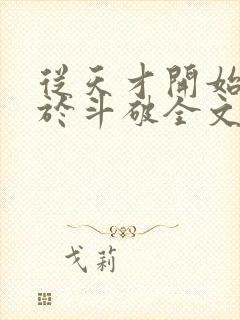 從天才開始
於斗破全文
戈莉